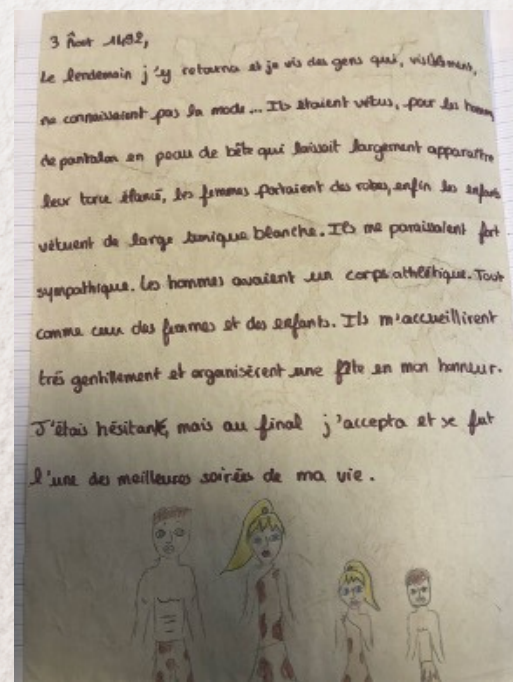 3 Août 1492,
Le lendemain j'y retourna et je vis des gens qui, visiblement,
ne connaissaient pas la mode... Ils étaient vêtus, pour les hommes
de pantalon en peau de bête qui laissait largement apparaître
leur torse élancé, les femmes portaient des robes, enfin les enfants
vêtuent de large tunique blanche. Ils me paraissaient fort
sympathique. Les hommes avaient un corps athlétique. Tout
comme ceux des femmes et des enfants. Ils m'accueillirent
trés gentillement et organisèrent une fête en mon honneur.
J'étais hésitante, mais au final j'accepta et se fut
l'une des meilleures soirées de ma vie.